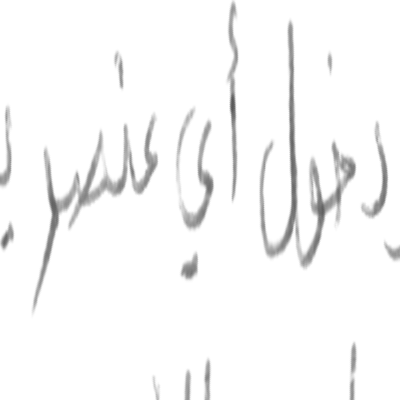 دخول أي عنصر